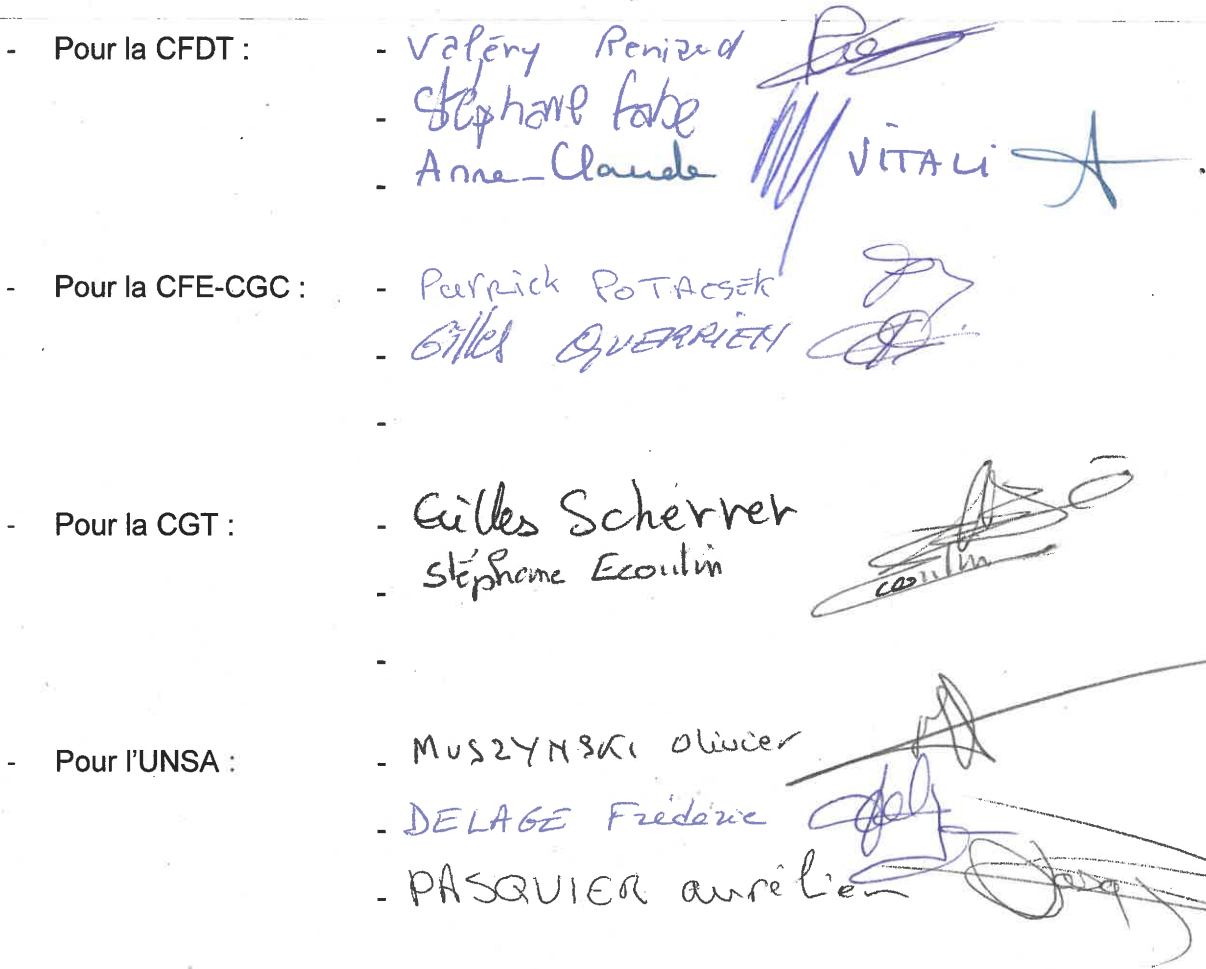 - Pour la CFDT : - Valéry Renizud
- Stéphane Fabe
- Anne-Claude VITALI
- Pour la CFE-CGC : - Patrick POTACSEK
- Gilles QUERRIEN
-
- Pour la CGT : - Gilles Scherrer
- Stéphane Ecoutin
-
- Pour l'UNSA : - MUSZYNSKI Olivier
- DELAGE Frédéric
- PASQUIER aurélien